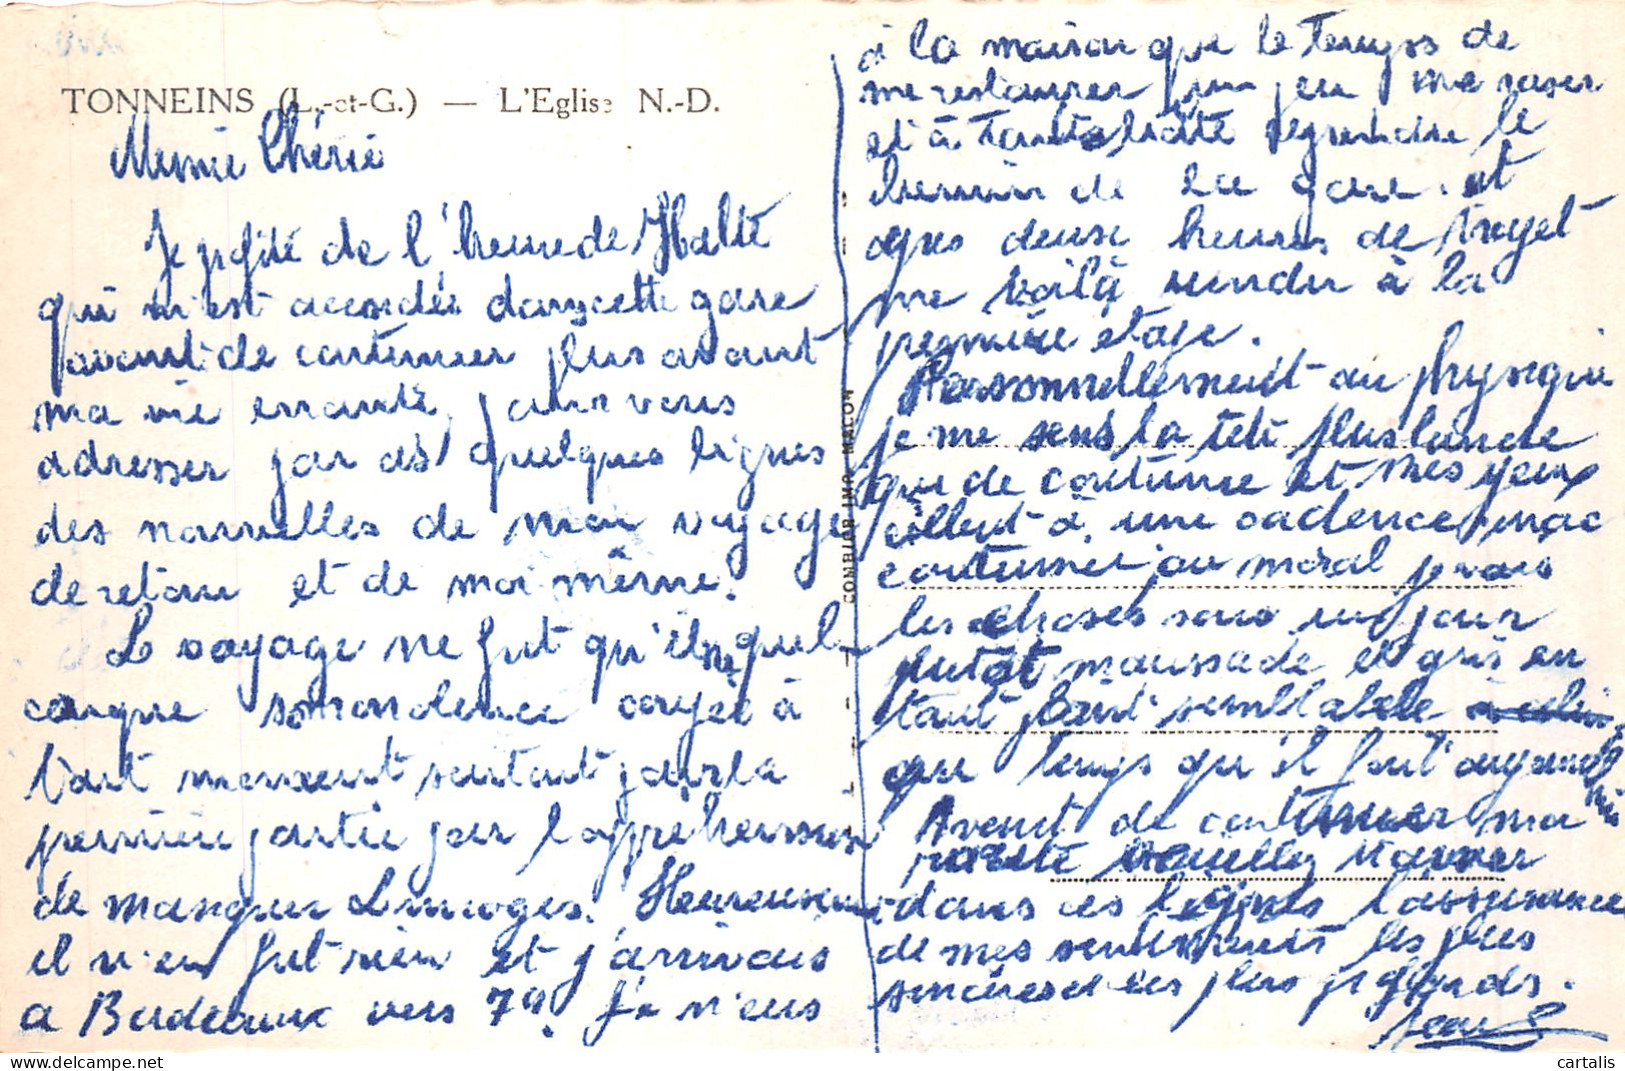 TONNEINS (L.-et-G.) — L'Eglise N.-D.
Mimie Chérie
Je profite de l'heure de Halte
qui m'est accordée dans cette gare
avant de continuer plus avant
ma vie errante, pour vous
adresser par ces quelques lignes
des nouvelles de mon voyage
de retour et de moi même.
Le voyage ne fut qu'une quel-
conque somnolence coupée à
tout moment surtout dans la
première partie par l'appréhension
de manquer Limoges. Heureusement
il n'en fut rien et j'arrivais
a Bordeaux vers 7h. Je n'eus
à la maison que le temps de
me restaurer un peu me raser
et à toute hâte reprendre le
chemin de la gare. et
apres deux heures de trajet
me voilà rendu à la
première étape.
Personnellement au physique
je me sens la tête plus lourde
que de coutume et mes yeux
à une cadence inac
coutumée, au moral je vois
les choses sous un jour
plutôt maussade et gris en
tout point semblable
au temps qu'il fait aujourd'hui
Avant de continuer ma
route veuillez trouver
dans ces lignes l'assurance
de mes sentiments les plus
sincères et les plus profonds.
Jean
COMBIER IMP. MACON
cartalis